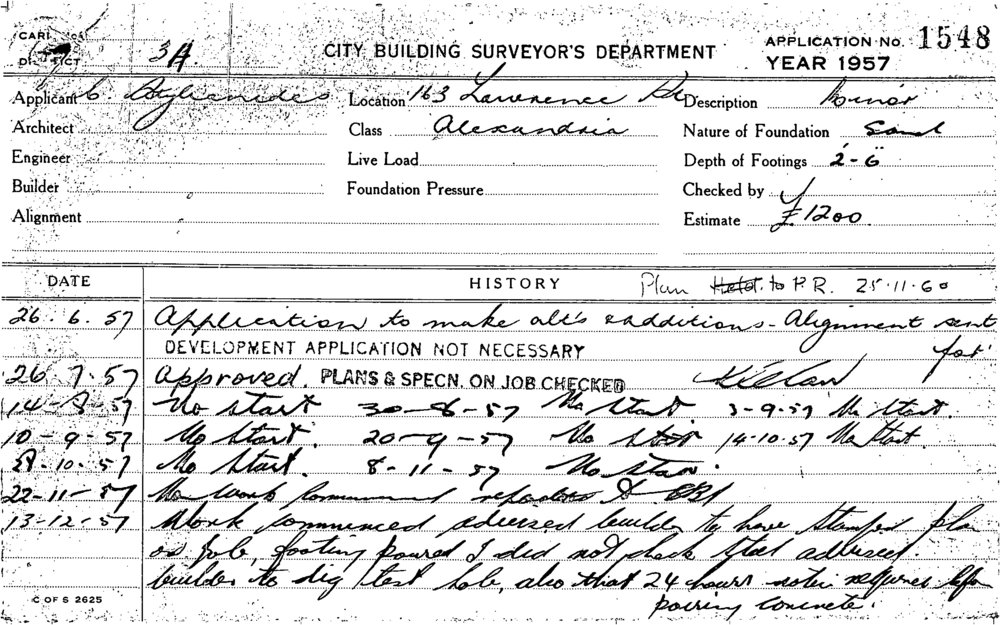 CARD OF
DISTRICT
3A
CITY BUILDING SURVEYOR'S DEPARTMENT
APPLICATION No. 1548
YEAR 1957
Applicant C.
Location 163 Lawrence St
Description Minor
Architect
Class Alexandria
Nature of Foundation Sand
Engineer
Live Load
Depth of Footings 2-6
Builder
Foundation Pressure
Checked by
Alignment
Estimate £1200
DATE
HISTORY
Plan Held to P.R. 25.11.60
26.6.57 Application to make alts & additions - Alignment sent for
DEVELOPMENT APPLICATION NOT NECESSARY
26.7.57 Approved. PLANS & SPECN. ON JOB CHECKED
14-8-57 No start 30-8-57 No start 3-9-57 No start.
10-9-57 No start. 20-9-57 No start 14-10-57 No start.
10-57 No start. 8-11-57 No start.
22-11-57 No work commenced
13-12-57 Work commenced advised builder to have stamped plan
on job, footing poured I did not check steel advised
builder to dig test hole, also that 24 hours notice required before
pouring concrete.
C OF S 2625